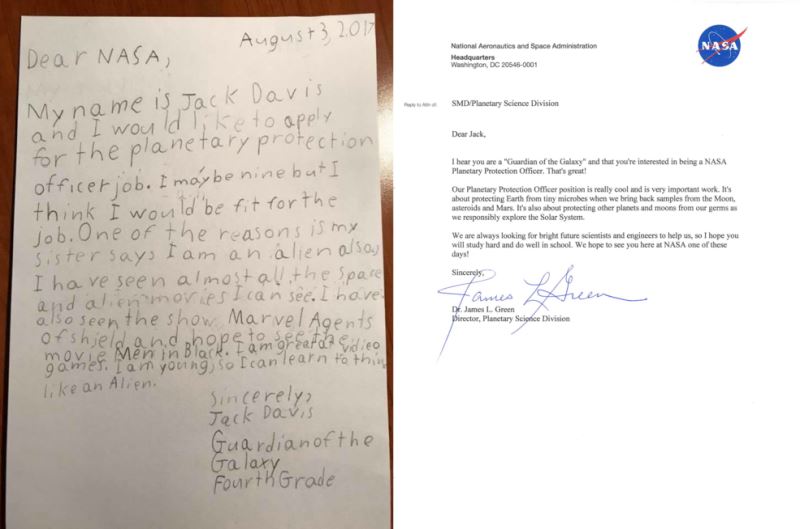 August 3, 2017
Dear NASA,
My name is Jack Davis
and I would like to apply
for the planetary protection
officer job. I may be nine but I
think I would be fit for the
job. One of the reasons is my
sister says I am an alien also,
I have seen almost all the space
and alien movies I can see. I have
also seen the show Marvel Agents
of shield and hope to see the
movie Men in Black. I am great at video
games. I am young, so I can learn to think
like an Alien.
Sincerely,
Jack Davis
Guardian of the
Galaxy
Fourth Grade
NASA
National Aeronautics and Space Administration
Headquarters
Washington, DC 20546-0001
Reply to Attn of:
SMD/Planetary Science Division
Dear Jack,
I hear you are a "Guardian of the Galaxy" and that you're interested in being a NASA
Planetary Protection Officer. That's great!
Our Planetary Protection Officer position is really cool and is very important work. It's
about protecting Earth from tiny microbes when we bring back samples from the Moon,
asteroids and Mars. It's also about protecting other planets and moons from our germs as
we responsibly explore the Solar System.
We are always looking for bright future scientists and engineers to help us, so I hope you
will study hard and do well in school. We hope to see you here at NASA one of these
days!
Sincerely,
James L Green
Dr. James L. Green
Director, Planetary Science Division